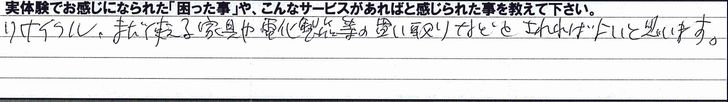 実体験でお感じになられた「困った事」や、こんなサービスがあればと感じられた事を教えて下さい。
リサイクル、まだ使える家具や電化製品等の買い取りなどをされればよいと思います。